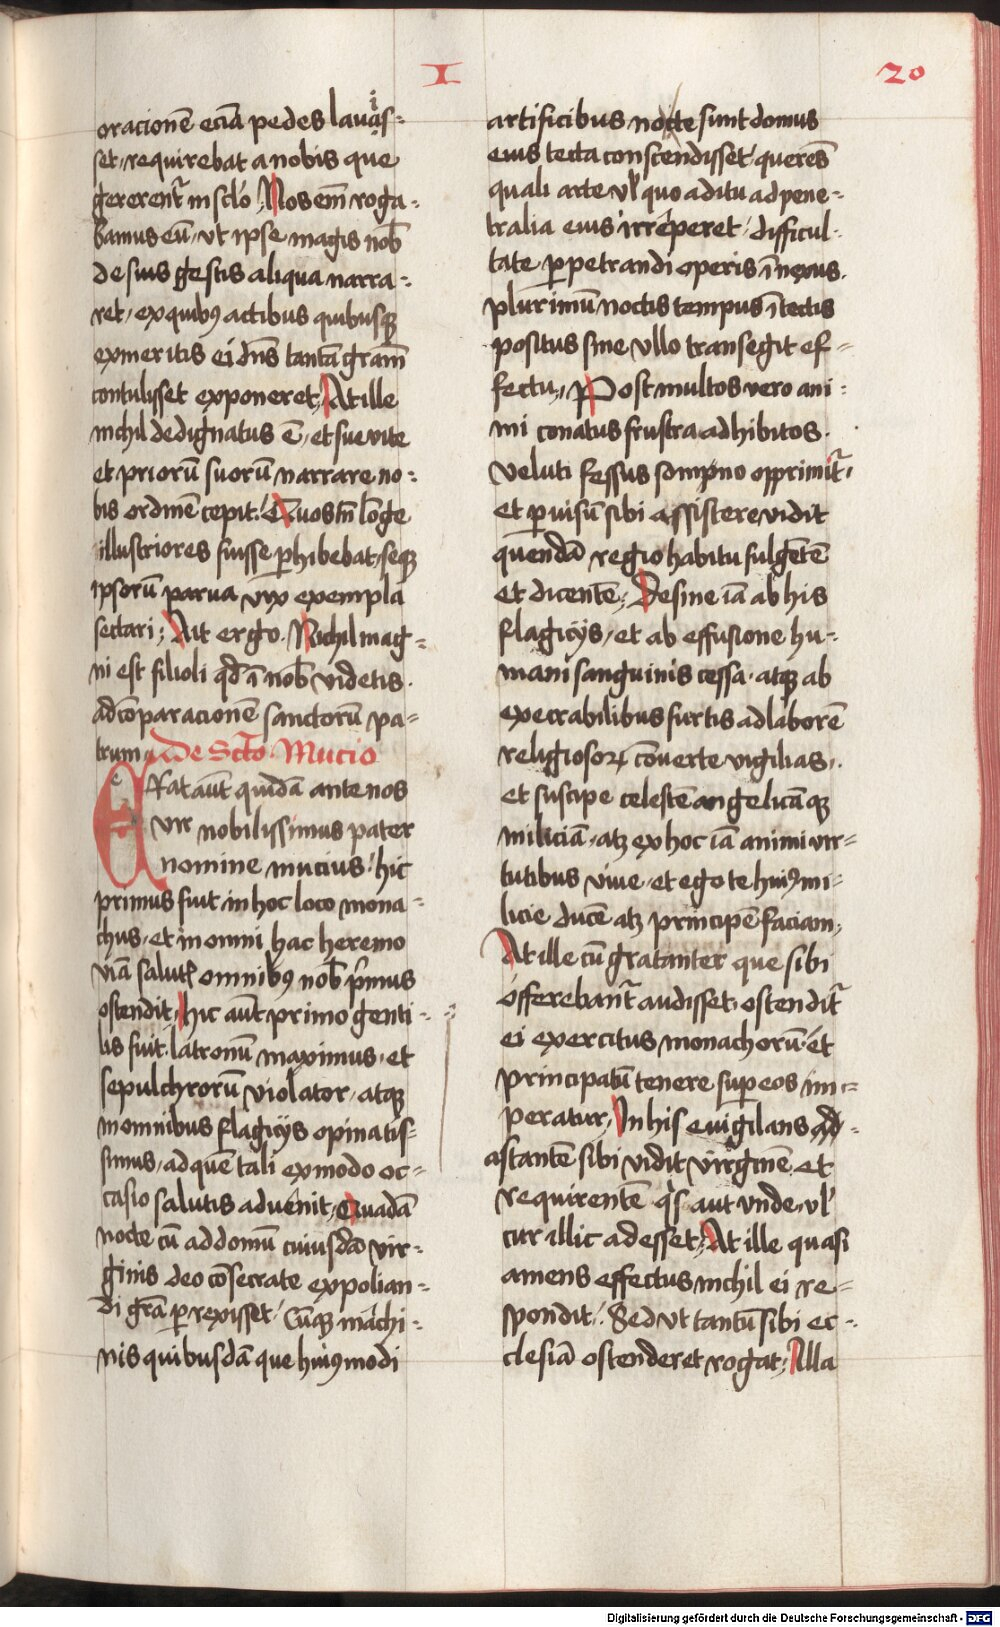 I
20
oracionē eciā pedes lauas-
i
set, requirebat a nobis que
gererent᷑ in sclo. Nos em̄ roga-
bamus eū, vt ipse magis nob̄
de suis gestis aliqua narra-
ret, ex quibꝯ actibus quibusqꝫ
ex meritis ei dn̄s tantā gram̄
contulisset exponeret. At ille
nichil dedignatus ē, et sue vite
et priorū suorū narrare no-
bis ordinē cepit. Quos m̄ lōge
illustriores fuisse ꝑhibebat, seqꝫ
ipsorū parua vix exempla
sectari; Ait ergo. Nichil mag-
ni est filioli qd̄ ī nob̄ videtis.
ad cōparacionē sanctorū pa-
trum. De Scto Mucio
e
ERat aūt quidā ante nos
vir nobilissimus pater
nomine mucius. hic
primus fuit in hoc loco mona-
chus, et in omni hac heremo
viā salut᷑ omnibꝯ nob̄ p̄mus
ostendit, hic aūt primo genti-
lis fuit, latronū maximus, et
sepulchrorū violator, atqꝫ
in omnibus flagicijs opinatis-
simus, ad quē tali ex modo oc-
casio salutis aduenit, Quadā
nocte cū ad domū cuiusdā vir-
ginis deo cōsecrate expolian-
di gr̄a ꝑrexisset. Cūqꝫ machi-
nis quibusdā que huiꝯmodi
artificibus nocte sunt domus
eius tecta conscendisset, querēs
quali arte vl̄ quo aditu ad pene-
tralia eius irreperet, difficul-
tate ꝑpetrandi operis īnexus.
plurimū noctis tempus ī tectis
positus sine vllo transegit ef-
fectu, Post multos vero ani-
mi conatus frustra adhibitos.
veluti fessus sompno opprimit᷑,
et ꝑ uisū sibi assistere vidit
quendā regio habitu fulgētē
et dicentē; Desine iā ab his
flagicijs, et ab effusione hu-
mani sanguinis cessa, atqꝫ ab
execrabilibus furtis ad laborē
religiosoꝝ cōuerte vigilias,
et suscipe celestē angelicāqꝫ
miliciā, atqꝫ ex hoc iā animi vir-
tutibus viue, et ego te huiꝯ mi-
licie ducē atqꝫ principē faciam,
At ille cū gratanter que sibi
offerebant᷑ audisset, ostendit᷑
ei exercitus monachorū, et
principatū tenere suꝑ eos im-
peratur, In his euigilans ad-
astantē sibi vidit virginē, et
requirentē qs̄ aut vnde, vl̄
cur illic adesset, At ille quasi
amens effectus nichil ei re-
spondit, Sed vt tantū sibi ec-
clesiā ostenderet rogat, Illa
Digitalisierung gefördert durch die Deutsche Forschungsgemeinschaft - DFG